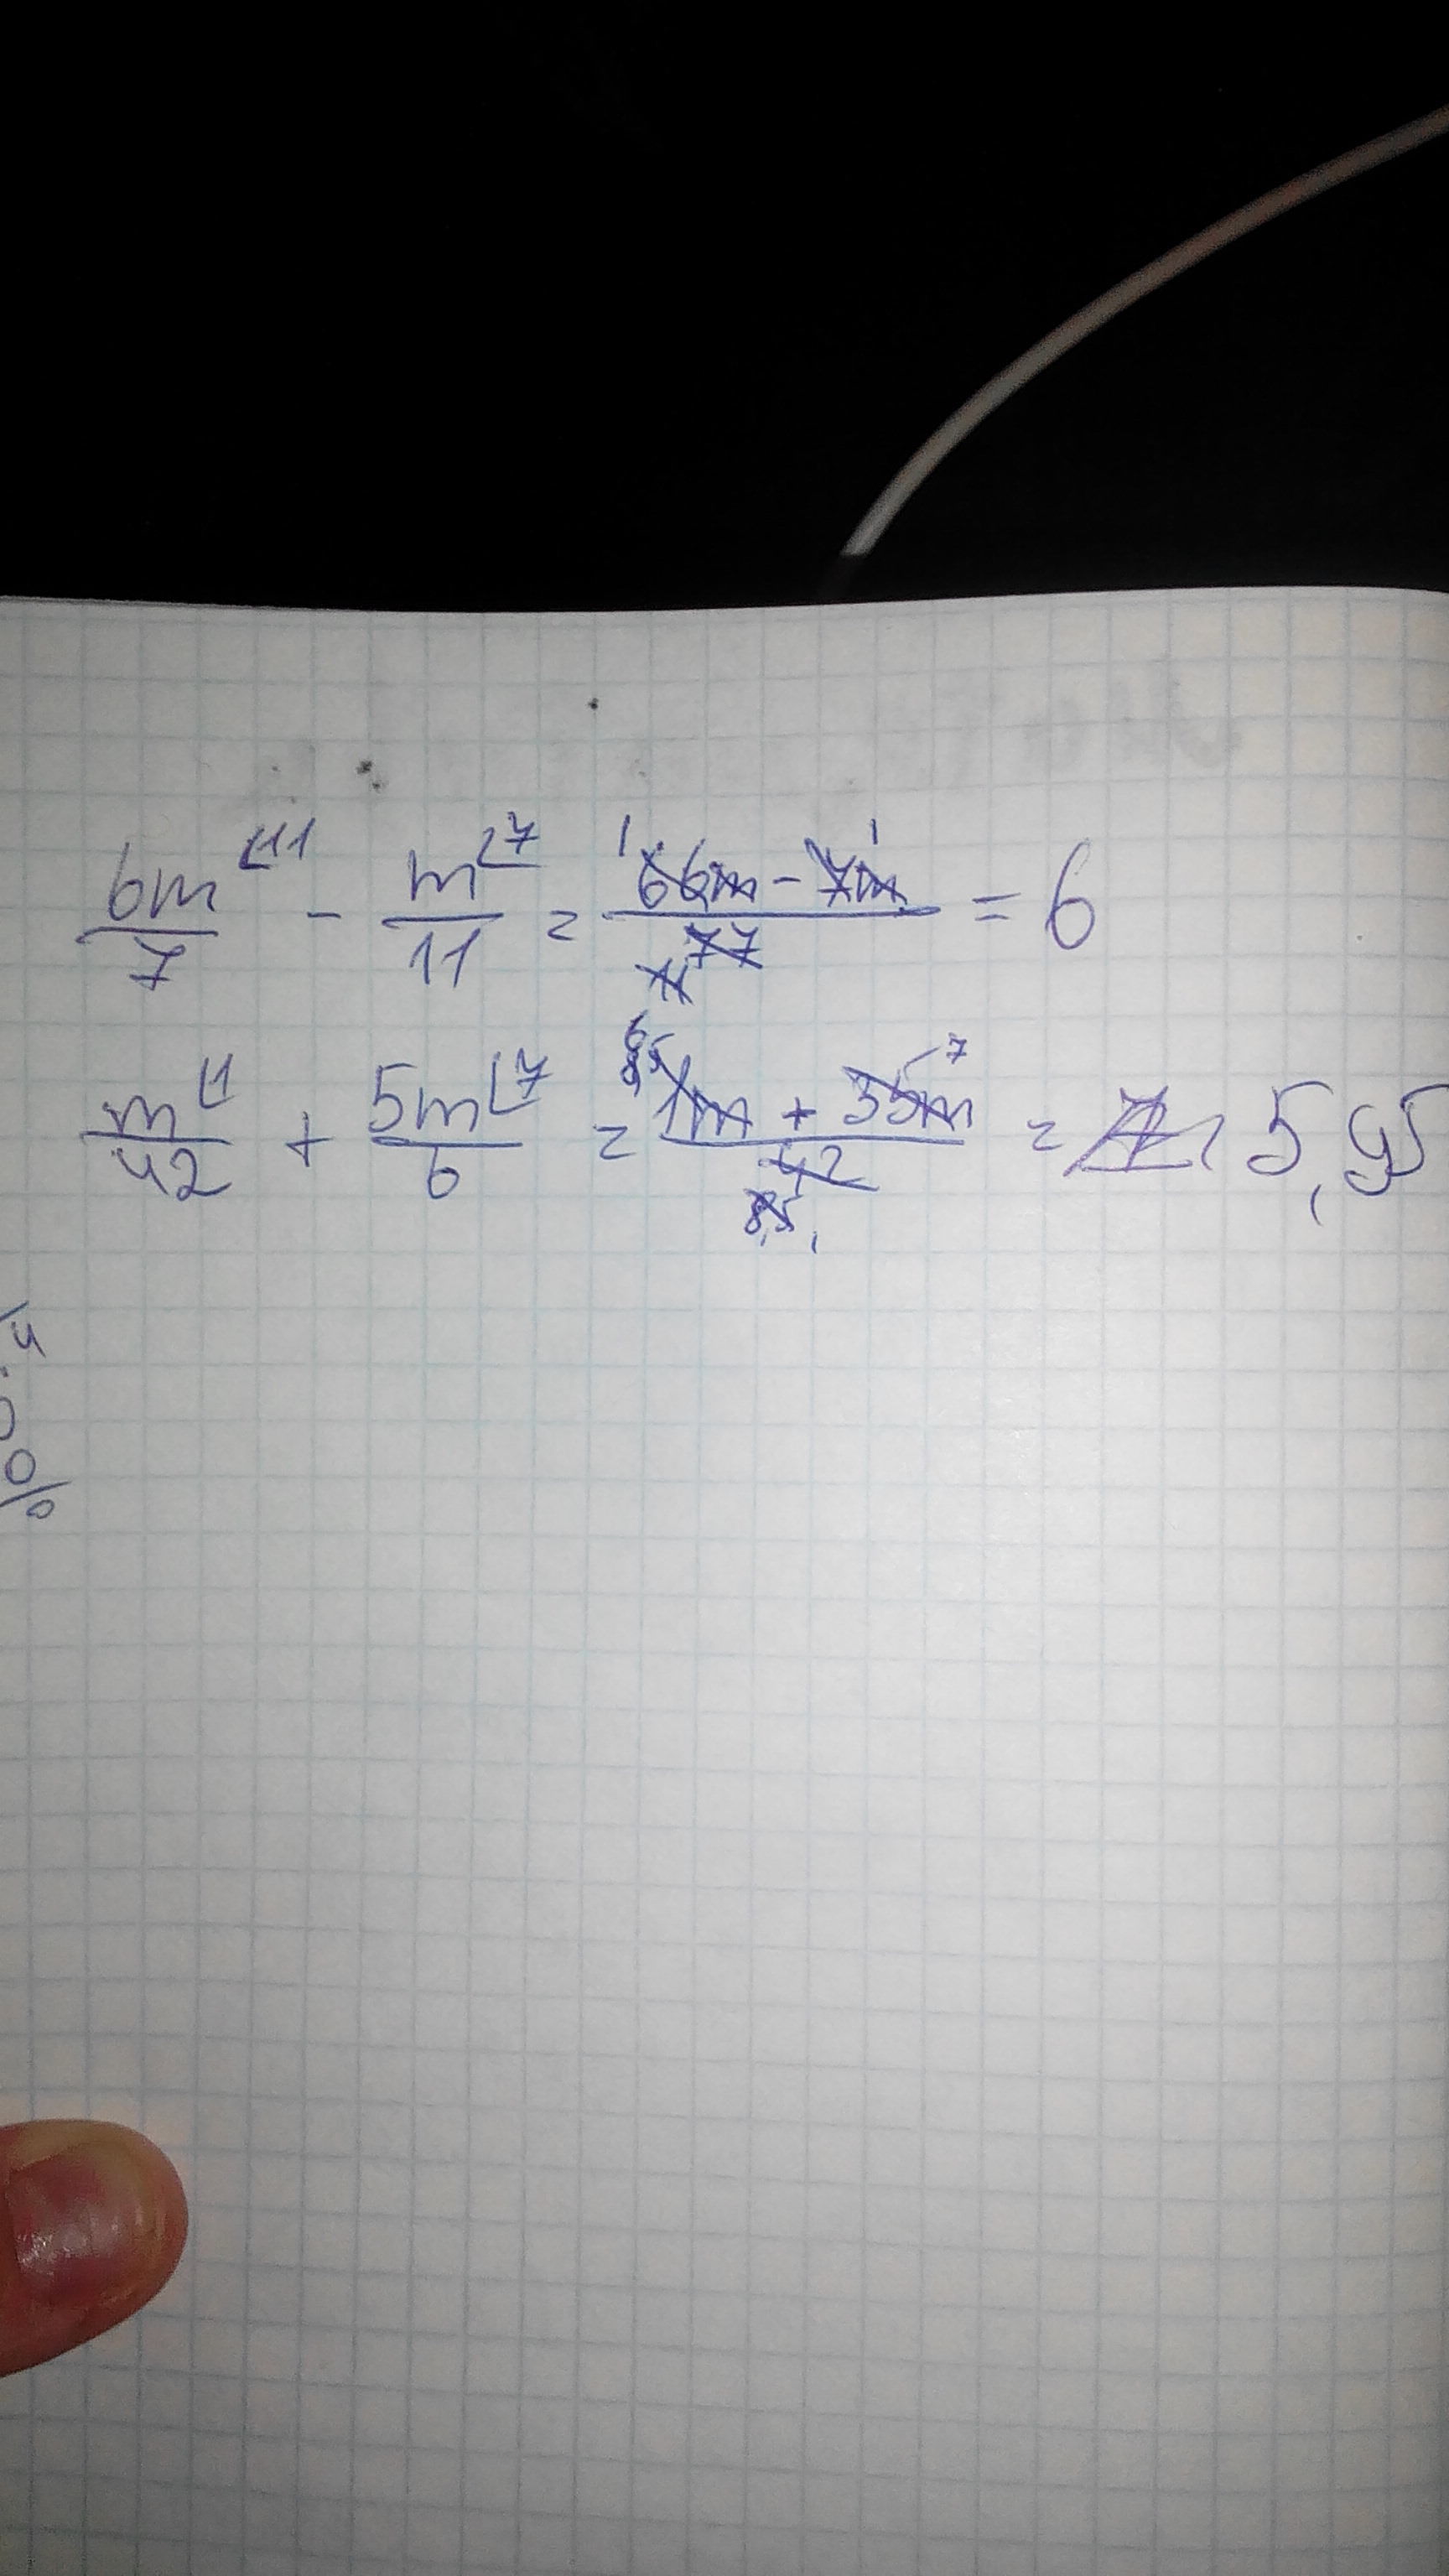 6m/7 ⌞11 - m/11 ⌞7 = 66m - 7m / 77 = 6
m/42 ⌞1 + 5m/6 ⌞7 = 1m + 35m / 42 = 5,95